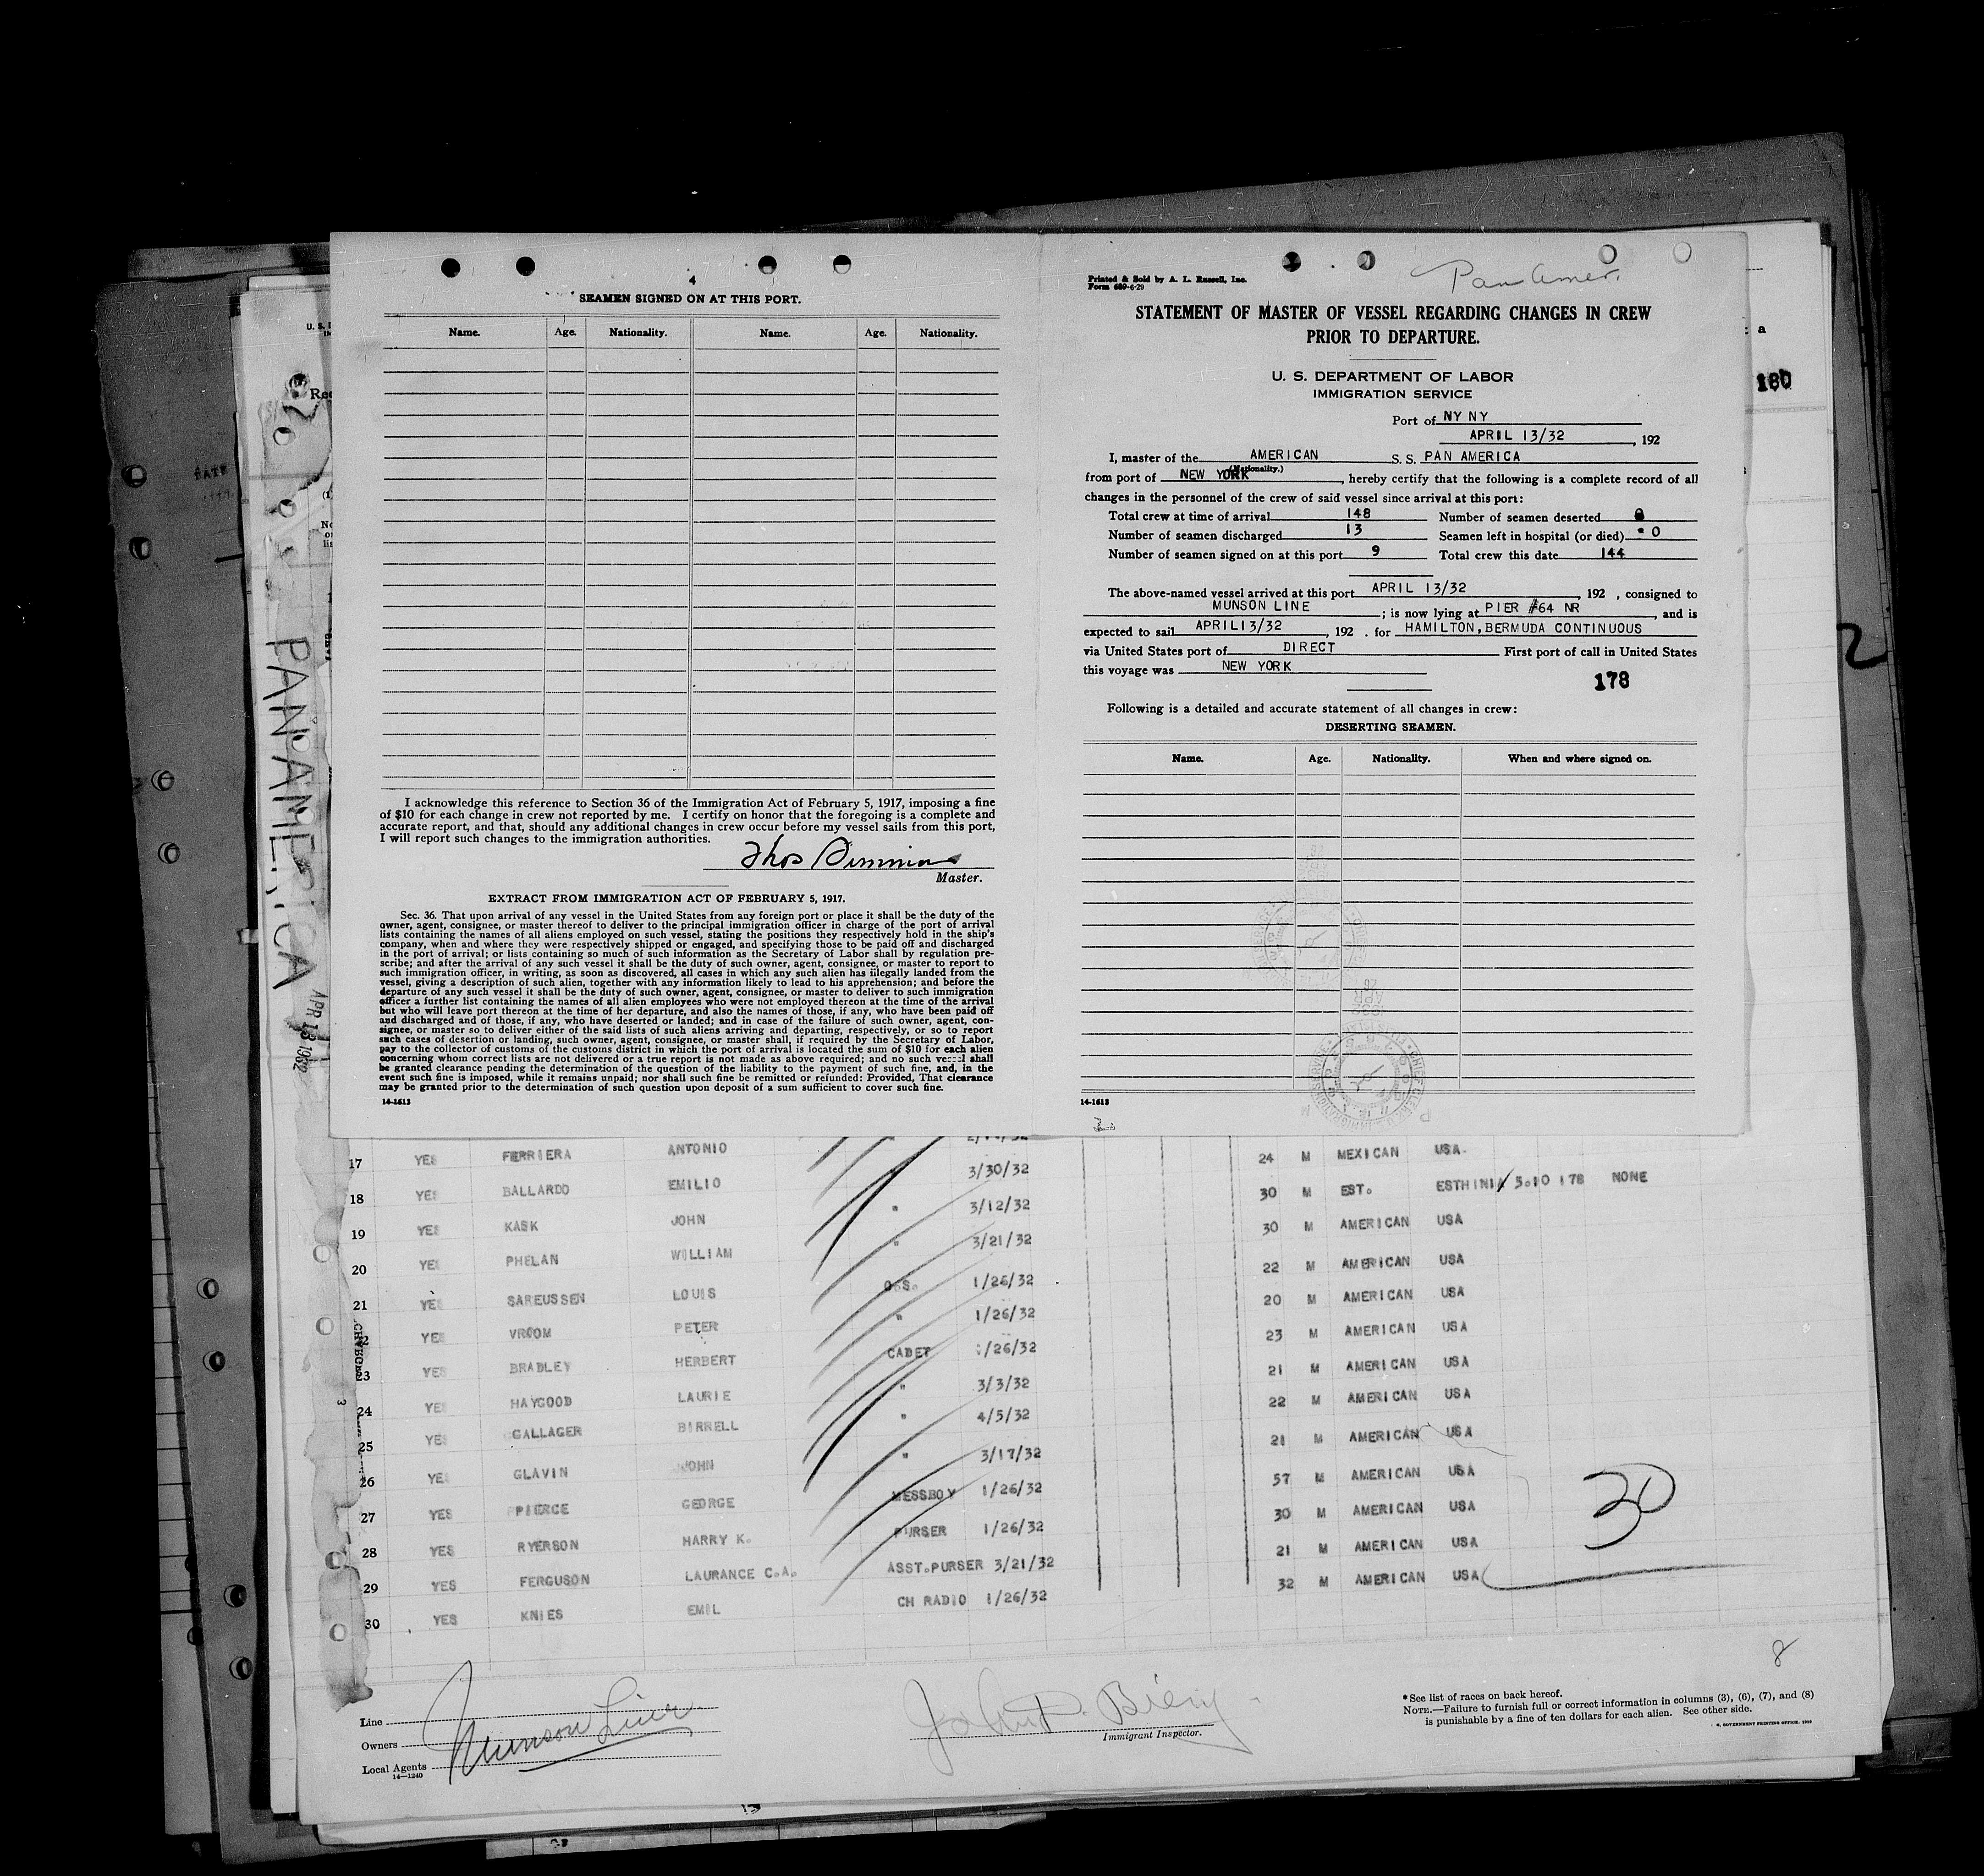 4
SEAMEN SIGNED ON AT THIS PORT.
Name. Age. Nationality. Name. Age. Nationality.
I acknowledge this reference to Section 36 of the Immigration Act of February 5, 1917, imposing a fine
of $10 for each change in crew not reported by me. I certify on honor that the foregoing is a complete and
accurate report, and that, should any additional changes in crew occur before my vessel sails from this port,
I will report such changes to the immigration authorities.
Thos
Master.
EXTRACT FROM IMMIGRATION ACT OF FEBRUARY 5, 1917.
Sec. 36. That upon arrival of any vessel in the United States from any foreign port or place it shall be the duty of the
owner, agent, consignee, or master thereof to deliver to the principal immigration officer in charge of the port of arrival
lists containing the names of all aliens employed on such vessel, stating the positions they respectively hold in the ship's
company, when and where they were respectively shipped or engaged, and specifying those to be paid off and discharged
in the port of arrival; or lists containing so much of such information as the Secretary of Labor shall by regulation pre-
scribe; and after the arrival of any such vessel it shall be the duty of such owner, agent, consignee, or master to report to
such immigration officer, in writing, as soon as discovered, all cases in which any such alien has illegally landed from the
vessel, giving a description of such alien, together with any information likely to lead to his apprehension; and before the
departure of any such vessel it shall be the duty of such owner, agent, consignee, or master to deliver to such immigration
officer a further list containing the names of all alien employees who were not employed thereon at the time of the arrival
but who will leave port thereon at the time of her departure, and also the names of those, if any, who have been paid off
and discharged and of those, if any, who have deserted or landed; and in case of the failure of such owner, agent, con-
signee, or master so to deliver either of the said lists of such aliens arriving and departing, respectively, or so to report
such cases of desertion or landing, such owner, agent, consignee, or master shall, if required by the Secretary of Labor,
pay to the collector of customs of the customs district in which the port of arrival is located the sum of $10 for each alien
concerning whom correct lists are not delivered or a true report is not made as above required; and no such vessel shall
be granted clearance pending the determination of the question of the liability to the payment of such fine, and, in the
event such fine is imposed, while it remains unpaid; nor shall such fine be remitted or refunded: Provided, That clearance
may be granted prior to the determination of such question upon deposit of a sum sufficient to cover such fine.
14-1613
Printed & Sold by A. L. Russell, Inc.
Form 689-6-29
Pan Amer.
STATEMENT OF MASTER OF VESSEL REGARDING CHANGES IN CREW
PRIOR TO DEPARTURE.
U. S. DEPARTMENT OF LABOR
IMMIGRATION SERVICE
Port of NY NY
APRIL 13/32, 192
I, master of the AMERICAN S. S. PAN AMERICA
(Nationality.)
from port of NEW YORK, hereby certify that the following is a complete record of all
changes in the personnel of the crew of said vessel since arrival at this port:
Total crew at time of arrival 148 Number of seamen deserted
Number of seamen discharged 13 Seamen left in hospital (or died) 0
Number of seamen signed on at this port 9 Total crew this date 144
The above-named vessel arrived at this port APRIL 13/32, 192 , consigned to
MUNSON LINE; is now lying at PIER #64 NR, and is
expected to sail APRIL13/32, 192 . for HAMILTON, BERMUDA CONTINUOUS
via United States port of DIRECT First port of call in United States
this voyage was NEW YORK
178
Following is a detailed and accurate statement of all changes in crew:
DESERTING SEAMEN.
Name. Age. Nationality. When and where signed on.
14-1613
180
PAN AMERICA
APR 13 1932
17 YES FERRIERA ANTONIO 24 M MEXICAN USA
18 YES BALLARDO EMILIO 3/30/32 30 M EST. ESTHINIA 5.10 178 NONE
19 YES KASK JOHN " 3/12/32 30 M AMERICAN USA
20 YES PHELAN WILLIAM " 3/21/32 22 M AMERICAN USA
21 YES SAREUSSEN LOUIS O.S. 1/26/32 20 M AMERICAN USA
22 YES VROOM PETER " 1/26/32 23 M AMERICAN USA
23 YES BRADLEY HERBERT CADET 1/26/32 21 M AMERICAN USA
24 YES HAYGOOD LAURIE " 3/3/32 22 M AMERICAN USA
25 YES GALLAGER BIRRELL " 4/5/32 21 M AMERICAN USA
26 YES GLAVIN JOHN " 3/17/32 57 M AMERICAN USA
27 YES PIERCE GEORGE MESSBOY 1/26/32 30 M AMERICAN USA
28 YES RYERSON HARRY K. PURSER 1/26/32 21 M AMERICAN USA
29 YES FERGUSON LAURANCE C.A. ASST.PURSER 3/21/32 32 M AMERICAN USA
30 YES KNIES EMIL CH RADIO 1/26/32
30
8
Line
Owners
Local Agents
14-1240
Munson Line
Immigrant Inspector.
*See list of races on back hereof.
NOTE.—Failure to furnish full or correct information in columns (3), (6), (7), and (8)
is punishable by a fine of ten dollars for each alien. See other side.